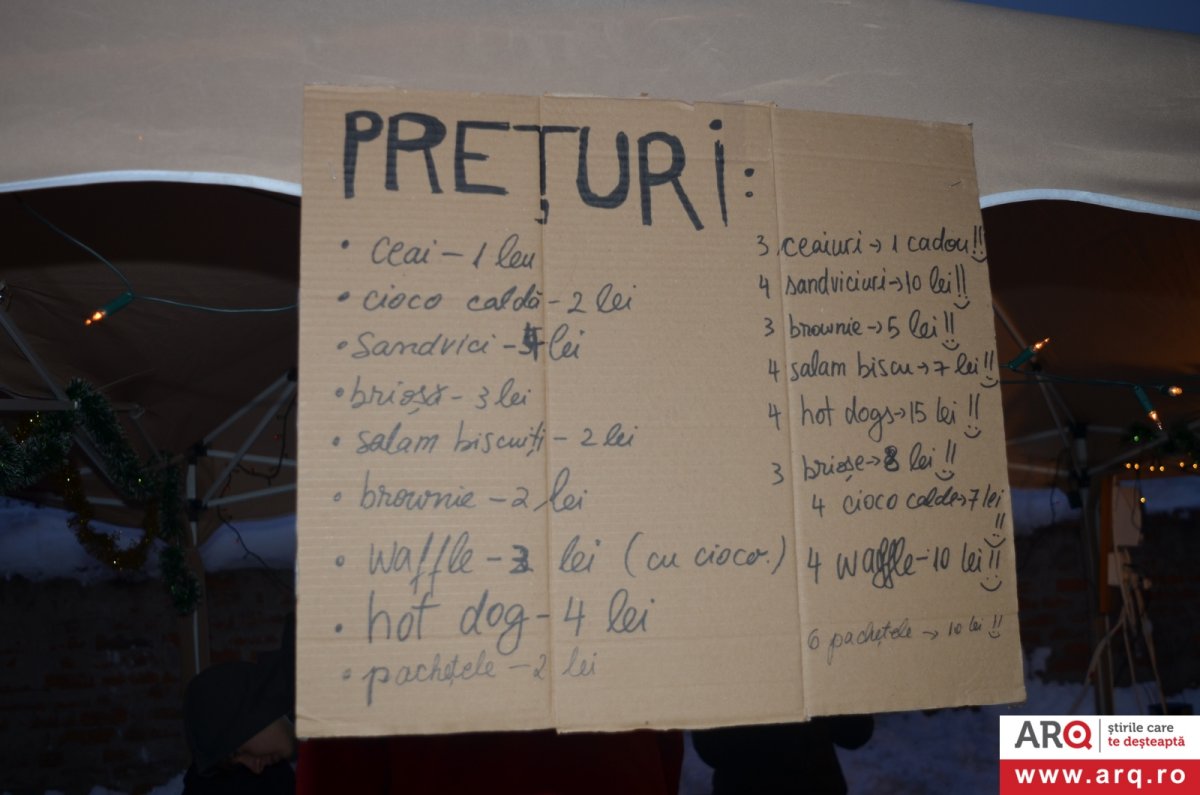 PREȚURI:
• ceai – 1 leu
• cioco caldă – 2 lei
• Sandvici – lei
• brioșă – 3 lei
• salam biscuiți – 2 lei
• brownie – 2 lei
• waffle – 3 lei (cu cioco.)
• hot dog – 4 lei
• pachețele – 2 lei
3 ceaiuri → 1 cadou!!
4 sandviciuri → 10 lei!!
3 brownie → 5 lei!!
4 salam biscu → 7 lei!!
4 hot dogs → 15 lei!!
3 brioșe → 8 lei!!
4 cioco calde → 7 lei!!
4 waffle – 10 lei!!
6 pachețele → 10 lei!!
ARQ
știrile care
te deșteaptă
www.arq.ro